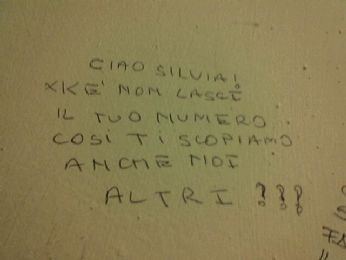 CIAO SILVIA!
XKE' NON LASCI
IL TUO NUMERO
COSI TI SCOPIAMO
ANCHE NOI
ALTRI ???